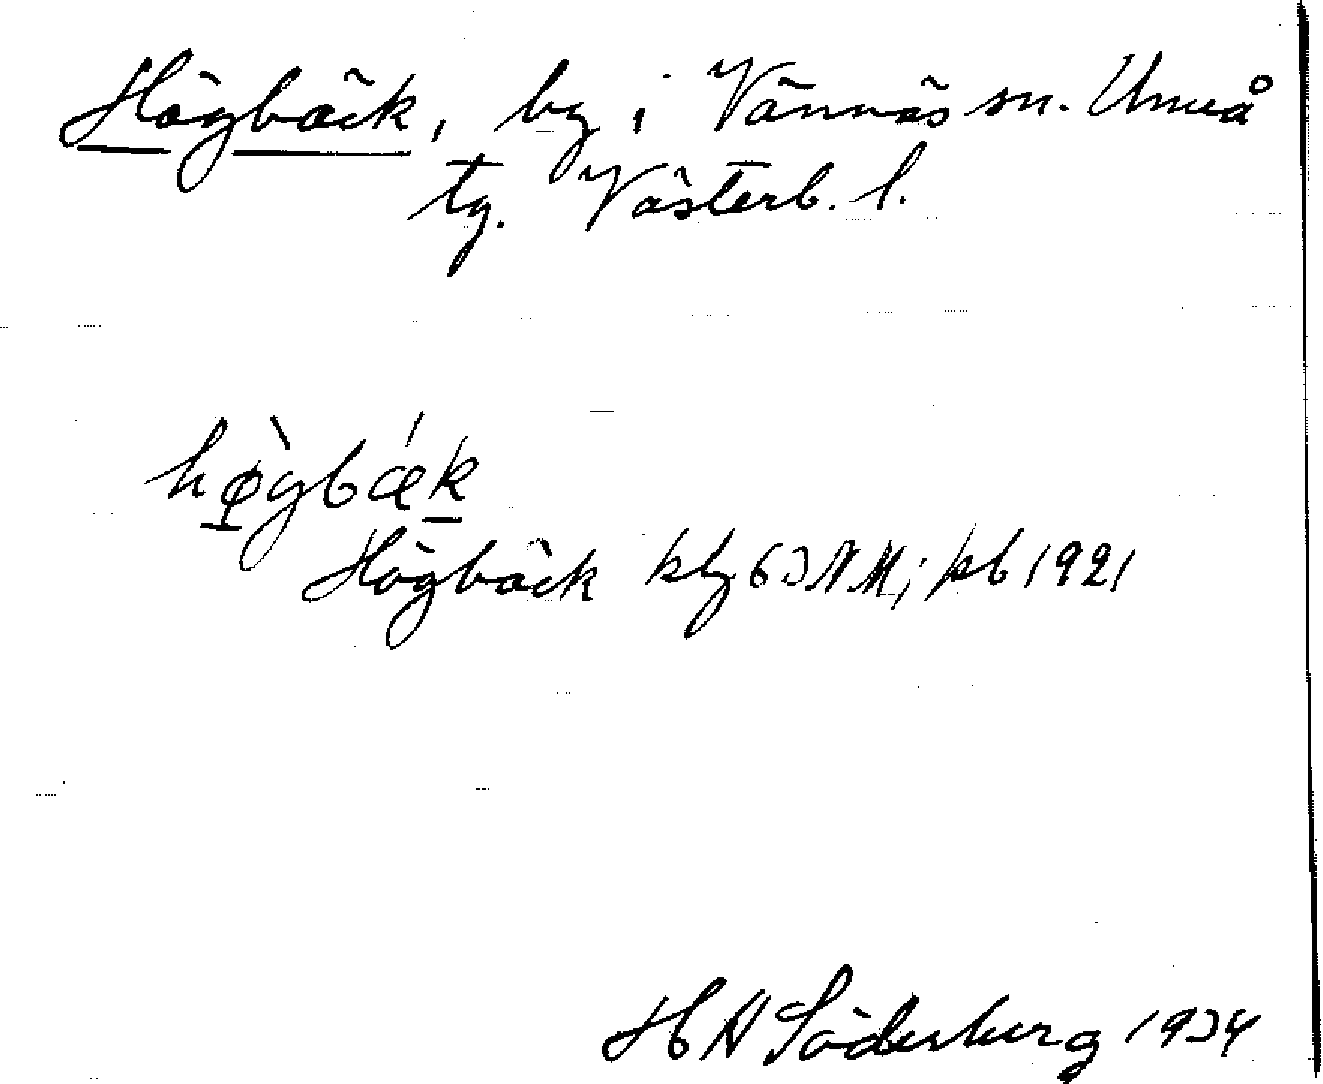 Högbäck, by i Vännäs sn. Umeå
tg. Västerb. l.
hø̀gbǽk
Högbäck kbg 63 NM; jkb 1921
H A Söderberg 1934